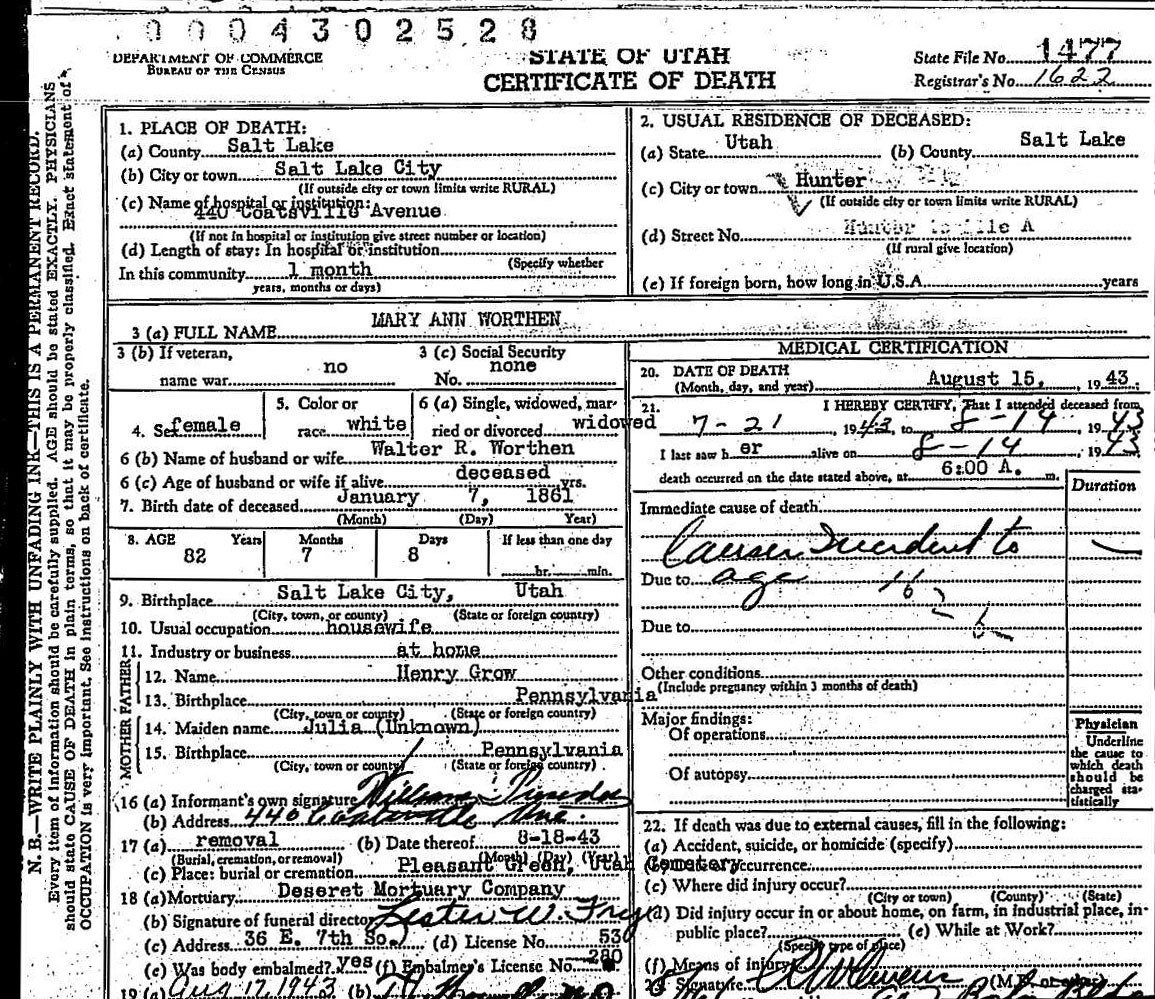 0004302528
DEPARTMENT OF COMMERCE
BUREAU OF THE CENSUS
STATE OF UTAH
CERTIFICATE OF DEATH
State File No. 1477
Registrar's No. 1622
N. B.—WRITE PLAINLY WITH UNFADING INK—THIS IS A PERMANENT RECORD.
Every item of information should be carefully supplied. AGE should be stated EXACTLY. PHYSICIANS
should state CAUSE OF DEATH in plain terms, so that it may be properly classified. Exact statement of
OCCUPATION is very important. See instructions on back of certificate.
1. PLACE OF DEATH:
(a) County Salt Lake
(b) City or town Salt Lake City
(If outside city or town limits write RURAL)
(c) Name of hospital or institution:
440 Coatsville Avenue
(If not in hospital or institution give street number or location)
(d) Length of stay: In hospital or institution
(Specify whether
In this community 1 month
years, months or days)
2. USUAL RESIDENCE OF DECEASED:
(a) State Utah (b) County Salt Lake
(c) City or town Hunter
(If outside city or town limits write RURAL)
(d) Street No. Hunter
(If rural give location)
(e) If foreign born, how long in U.S.A. years
3 (a) FULL NAME MARY ANN WORTHEN
3 (b) If veteran,
name war no
3 (c) Social Security
No. none
4. Sex female
5. Color or
race white
6 (a) Single, widowed, mar-
ried or divorced widowed
6 (b) Name of husband or wife Walter R. Worthen
6 (c) Age of husband or wife if alive deceased yrs.
7. Birth date of deceased January 7, 1861
(Month) (Day) Year)
8. AGE Years Months Days If less than one day
82 7 8 hr. min.
9. Birthplace Salt Lake City, Utah
(City, town, or county) (State or foreign country)
10. Usual occupation housewife
11. Industry or business at home
FATHER
12. Name Henry Grow
13. Birthplace Pennsylvania
(City, town or county) (State or foreign country)
MOTHER
14. Maiden name Julia (Unknown)
15. Birthplace Pennsylvania
(City, town or county) (State or foreign country)
16 (a) Informant's own signature William
(b) Address 440 Coatsville Ave.
17 (a) removal (b) Date thereof 8-18-43
(Burial, cremation, or removal) (Month) (Day) (Year)
(c) Place: burial or cremation Pleasant Green, Utah Cemetery
18 (a) Mortuary Deseret Mortuary Company
(b) Signature of funeral director Lester W. Frye
(c) Address 36 E. 7th So. (d) License No. 53
(e) Was body embalmed? yes (f) Embalmer's License No. 280
19 (a) Aug 17 1943 (b)
MEDICAL CERTIFICATION
20. DATE OF DEATH
(Month, day, and year) August 15, 1943.
21. I HEREBY CERTIFY, That I attended deceased from
7-21, 1943, to 8-14, 1943
I last saw her alive on 8-14, 1943
death occurred on the date stated above, at 6:00 A. m.
Duration
Immediate cause of death
Causes Incident to
Due to age 162
Due to b
Other conditions
(Include pregnancy within 3 months of death)
Major findings:
Of operations
Of autopsy
Physician
Underline
the cause to
which death
should be
charged sta-
tistically
22. If death was due to external causes, fill in the following:
(a) Accident, suicide, or homicide (specify)
(b) Date of occurrence
(c) Where did injury occur?
(City or town) (County) (State)
(d) Did injury occur in or about home, on farm, in industrial place, in-
public place? (e) While at Work?
(Specify type of place)
(f) Means of injury
23. Signature (M.D. or other)